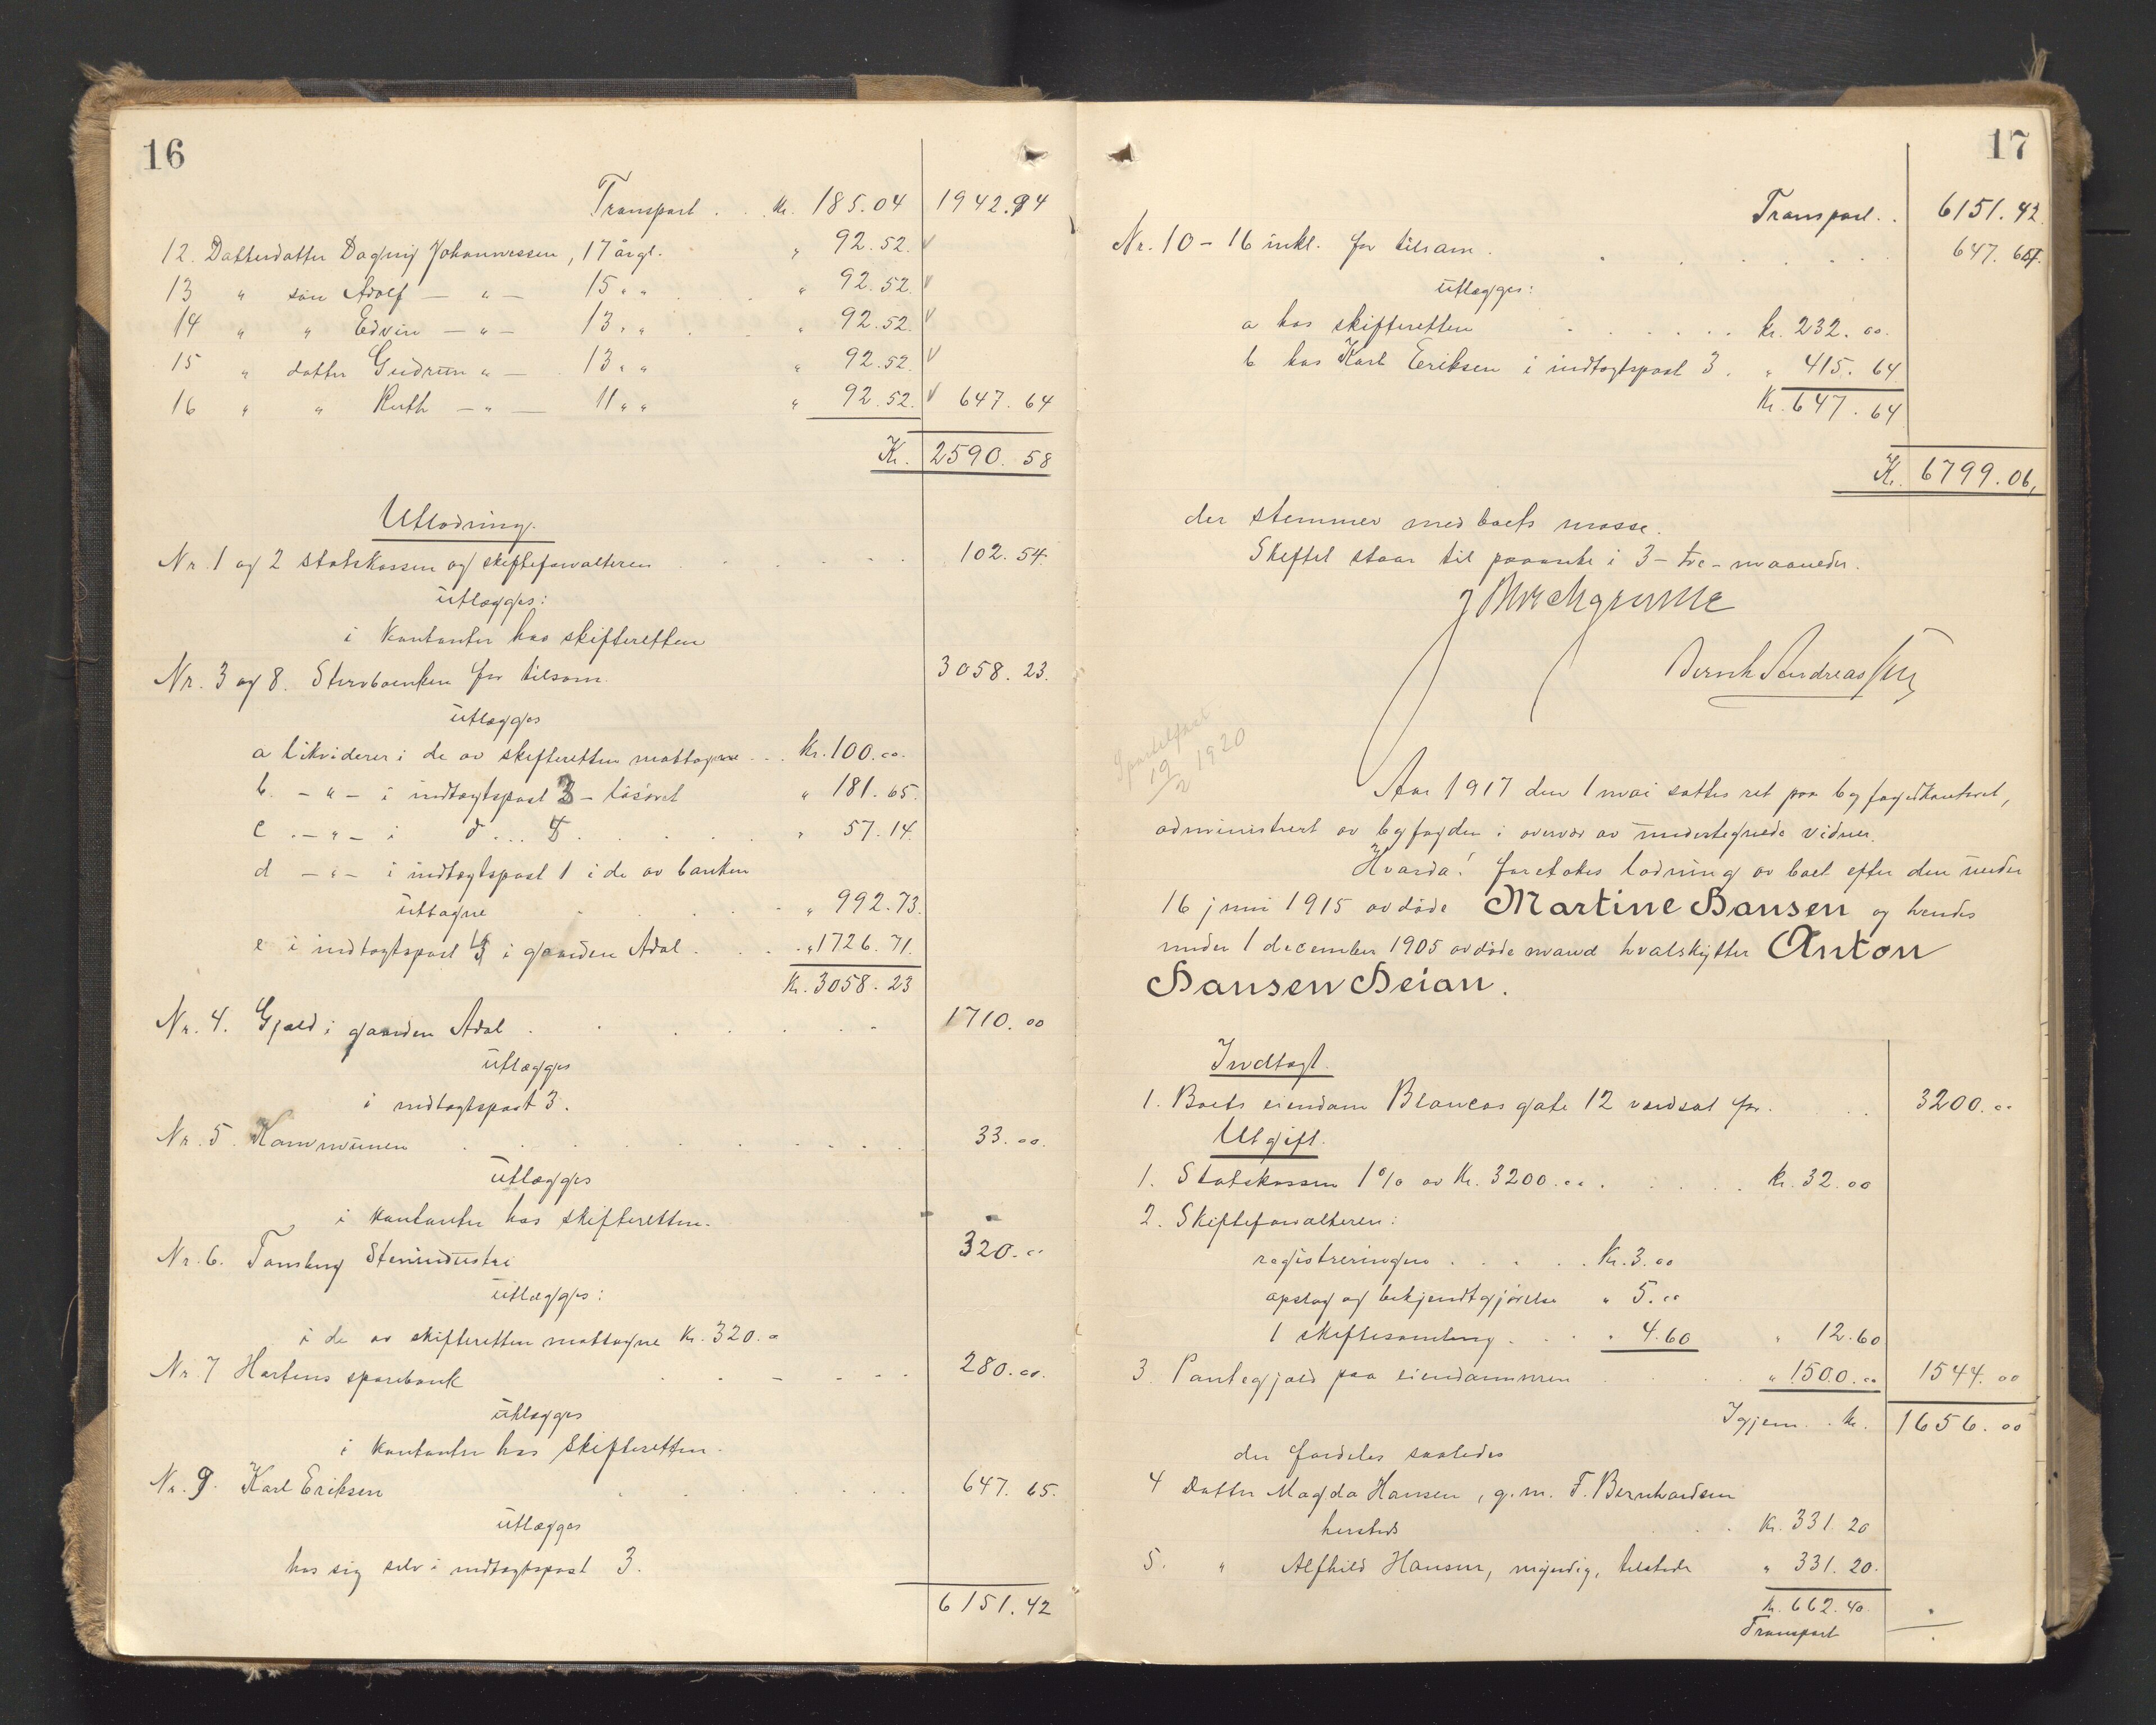 16
Transport . . Kr. 185.04 1942.94
12. Datterdatter Dagny Johannessen, 17 årgl. " 92.52. v
13 " søn Adolf — " — 15 " " " 92.52. v
14 " " Edvin — " — 13 " " " 92.52. v
15 " datter Gudrun " — 13 " " " 92.52. v
16 " " Ruth — " — 11 " " " 92.52. v 647.64
Kr. 2590.58
Utlodning.
Nr. 1 og 2 statskassen og skifteforvalteren 102.54.
utlægges:
i kontanter hos skifteretten
Nr. 3 og 8. Stervboenken for tilsam. 3058.23.
utlægges
a likviderer i de av skifteretten mottagne . . Kr. 100.00.
b. — " — i indtægtspost 3 — løsøret " 181.65.
c. — " — i d . . . 5 . " 57.14.
d — " — i indtægtspost 1 i de av banken
uttagne " 992.73.
e i indtægtspost 4 i gaarden Adal . . . " 1726.71.
Kr. 3058.23
Nr. 4. Gjæld i gaarden Adal . 1710.00
utlægges
i indtægtspost 3.
Nr. 5. Kommunen 33.00.
utlægges
i kontanter hos skifteretten.
Nr. 6. Tønsberg Stenindustri 320.00
utlægges:
i de av skifteretten mottagne Kr. 320.00
Nr. 7 Hortens sparebank 280.00.
utlægges
i kontanter hos skifteretten.
Nr. 9. Karl Eriksen 647.65.
utlægges
hos sig selv i indtægtspost 3.
6151.42
17
Transport . . 6151.42.
Nr. 10 – 16 inkl. for tilsam. 647.64.
utlægges:
a hos skifteretten kr. 232.00.
b hos Karl Eriksen i indtægtspost 3. " 415.64
Kr. 647.64
Kr. 6799.06,
der stemmer med boets masse.
Skiftet staar til paaanke i 3 – tre – maaneder.
Bernh Andreassen
19/2 1920
Aar 1917 den 1 mai sattes ret paa byfogedkontoret,
administrert av byfogden i overvær av undertegnede vidner.
Hvorda! foretokes lodning av boet efter den under
16 juni 1915 avdøde Martine Hansen og hendes
under 1 december 1905 avdøde mand hvalskytter Anton
Hansen Heian.
Indtægt.
1. Boets eiendom Blancas gate 12 verdsat for . . . 3200.00
Utgift.
1. Statskassen 1% av Kr. 3200.00 . . . . kr. 32.00
2. Skifteforvalteren:
registreringen . . . . . Kr. 3.00
opslag og bekjendtgjørelse " 5.00
1 skiftesamling . . . " 4.60 " 12.60
3. Pantegjæld paa eiendommen " 1500.00 1544.00
Igjen . . kr. 1656.00
der fordeles saaledes
4 Datter Magda Hansen, g.m. F. Bernhardsen
hersteds Kr. 331.20
5. " Alfhild Hansen, myndig, tilstede " 331.20.
Kr. 662.40.
Transport